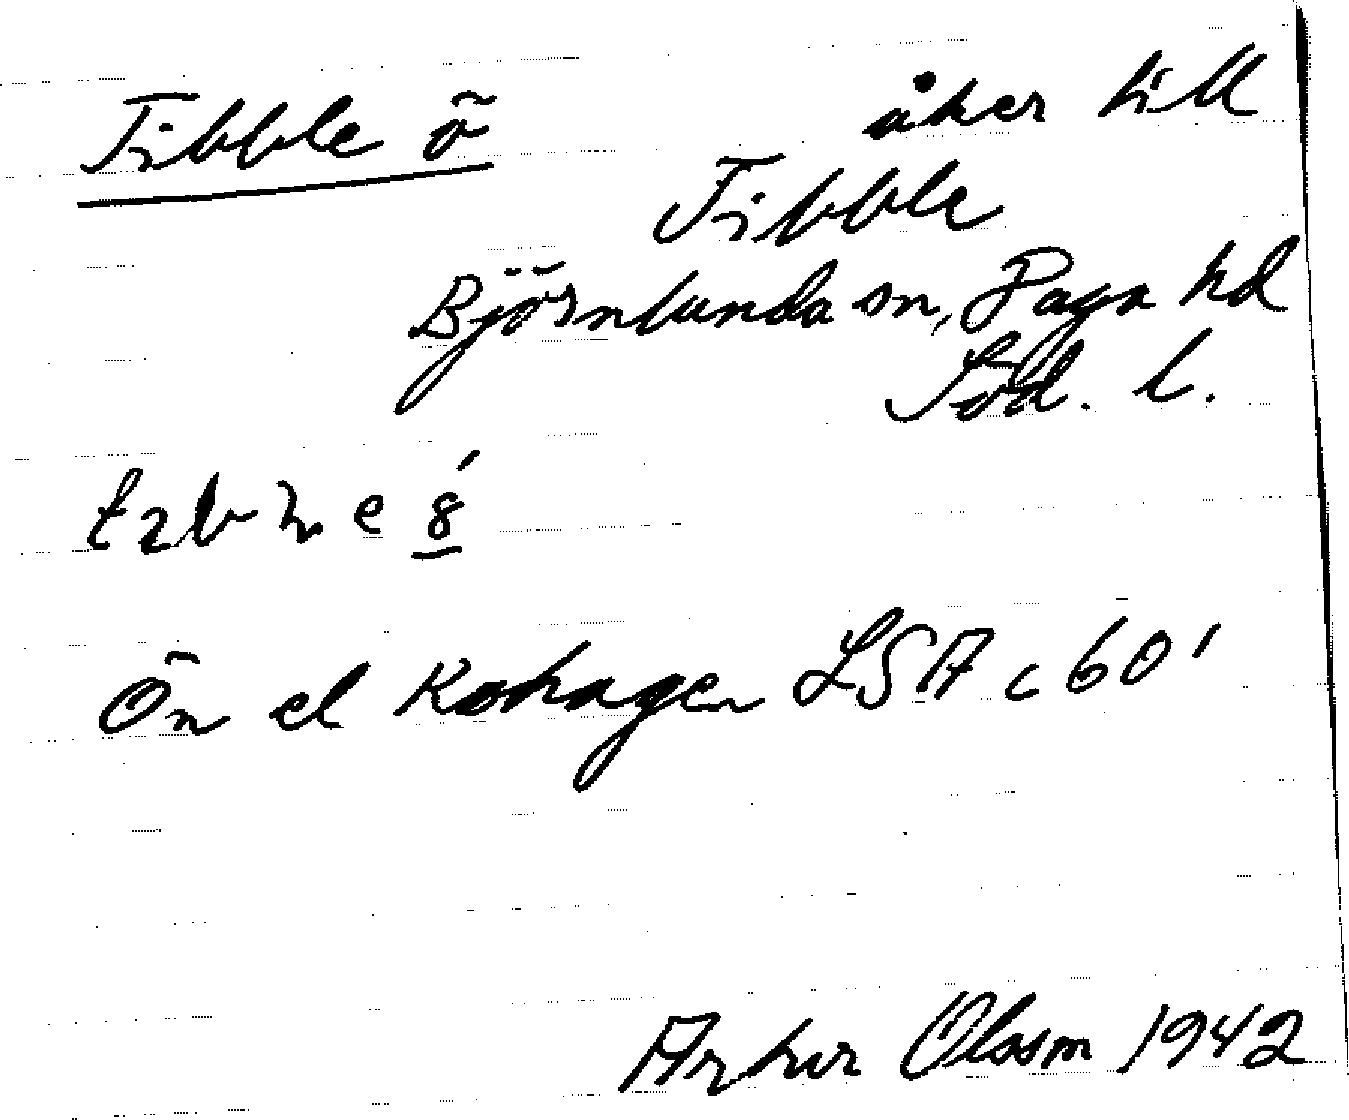 Tibble ö
åker till
Tibble
Björnlunda sn, Daga hd
Söd. l.
Ön el Kohagen LSA c 60'
Arthur Olsson 1942